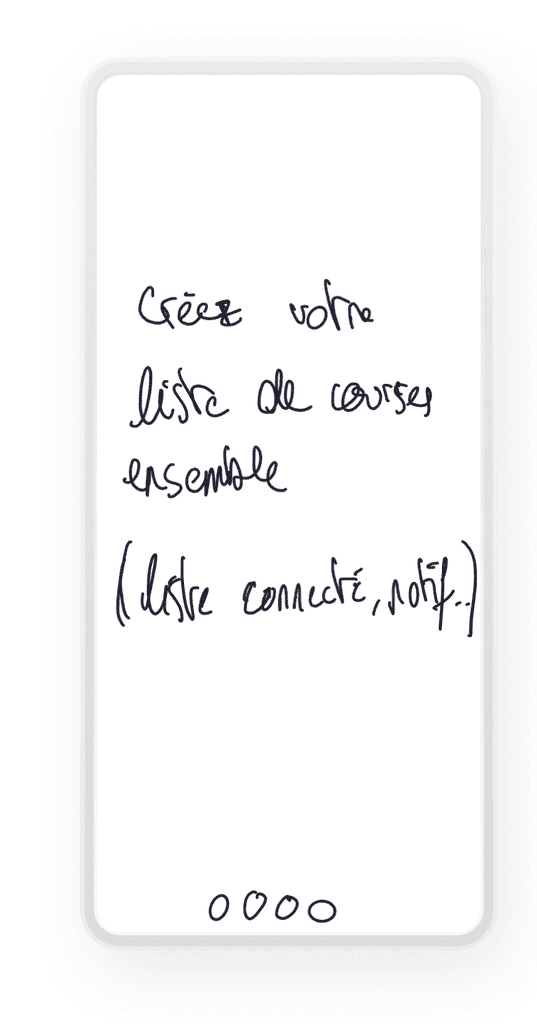 Créez votre
liste de courses
ensemble
(liste connecté, notif..)